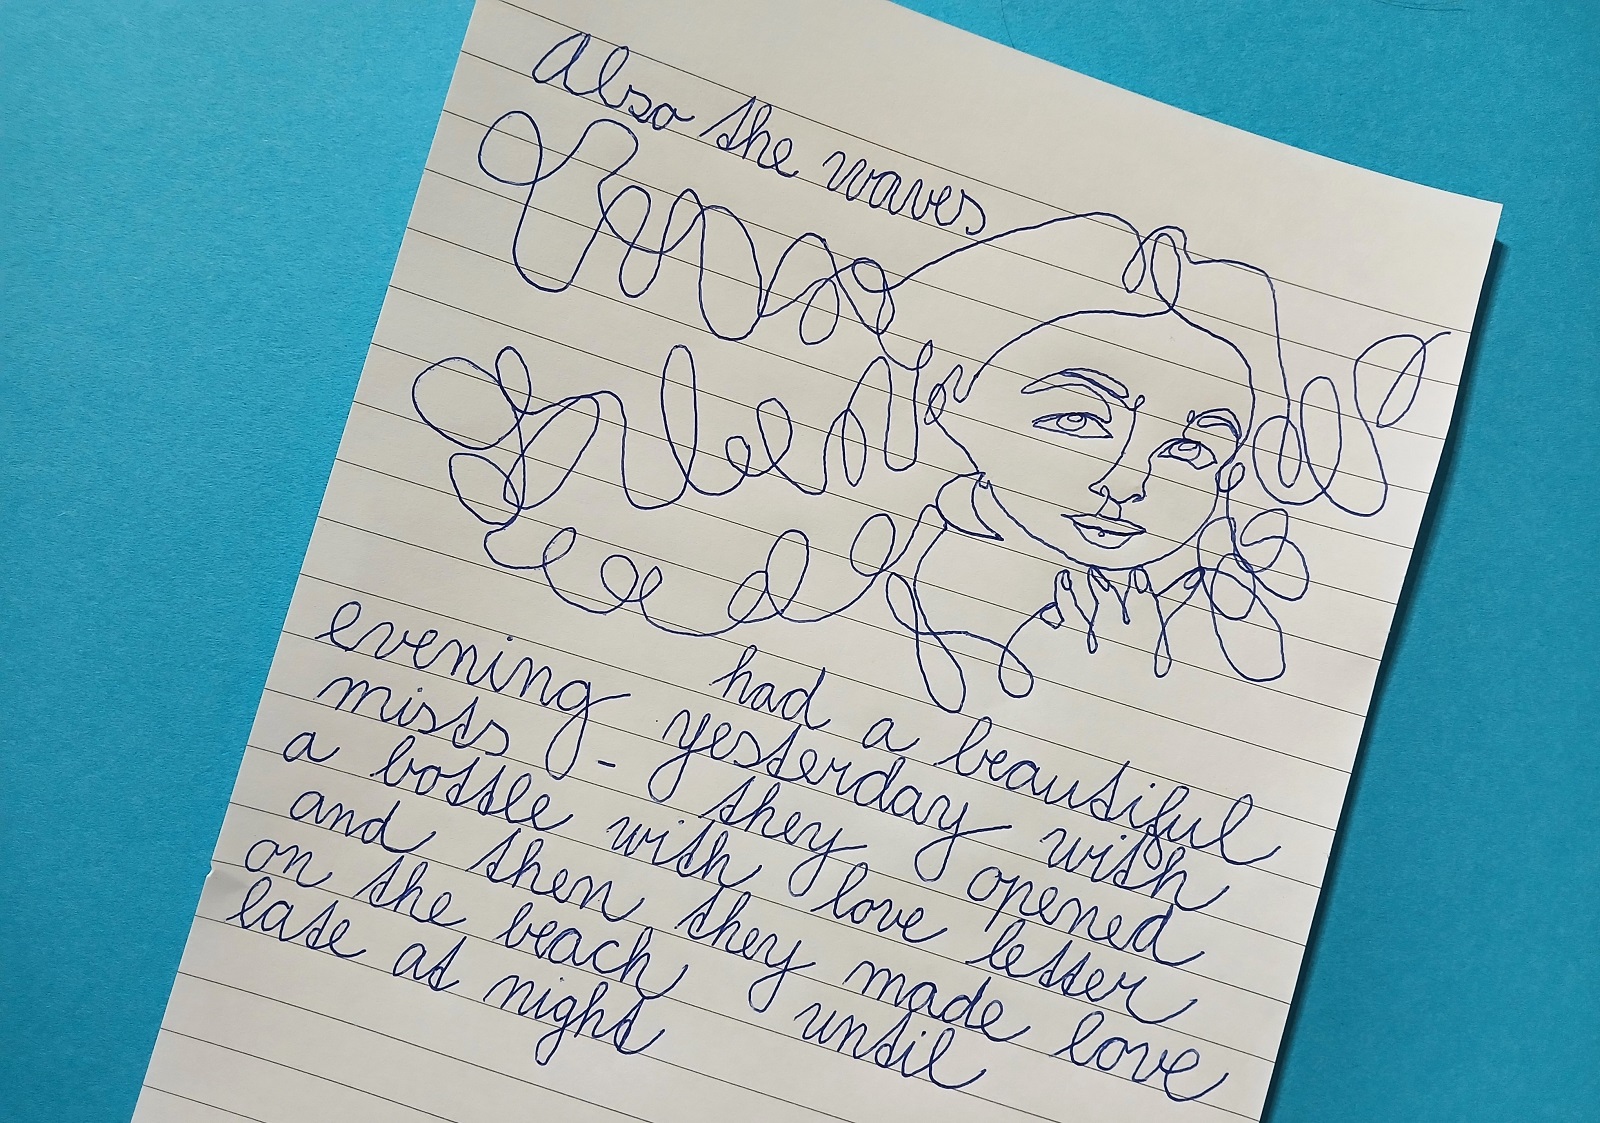 Also the waves
had a beautiful
evening yesterday with
mists - they opened
a bottle with love letter
and then they made love
on the beach until
late at night